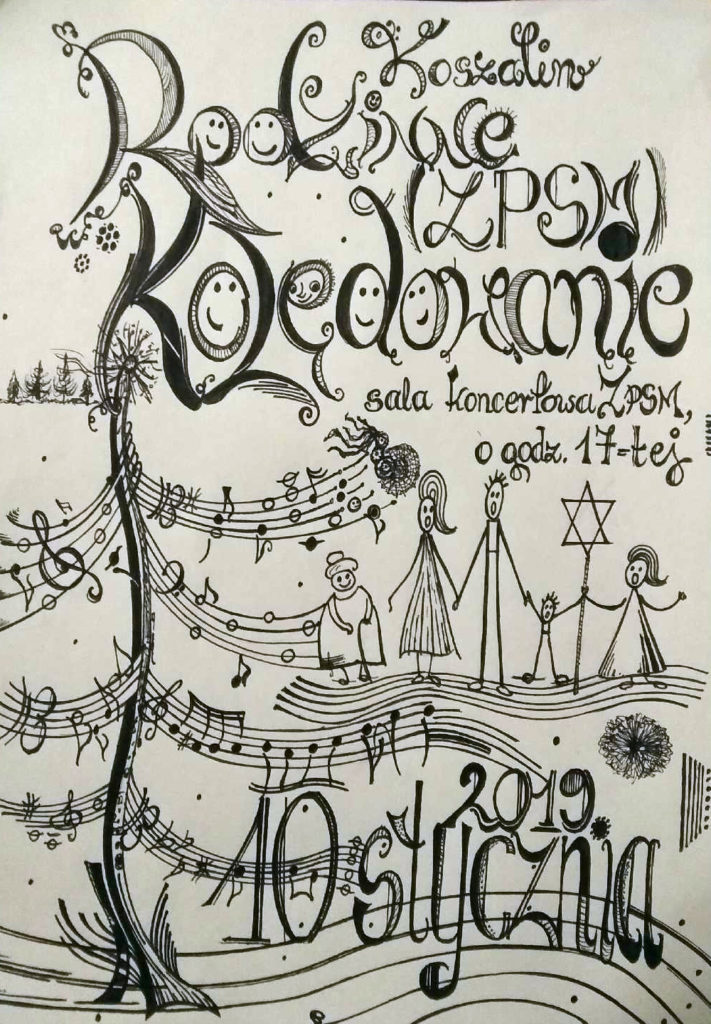 Koszalin
Rodzinne
(ZPSM)
Kolędowanie
sala koncertowa ZPSM,
o godz. 17=tej
2019
10 stycznia